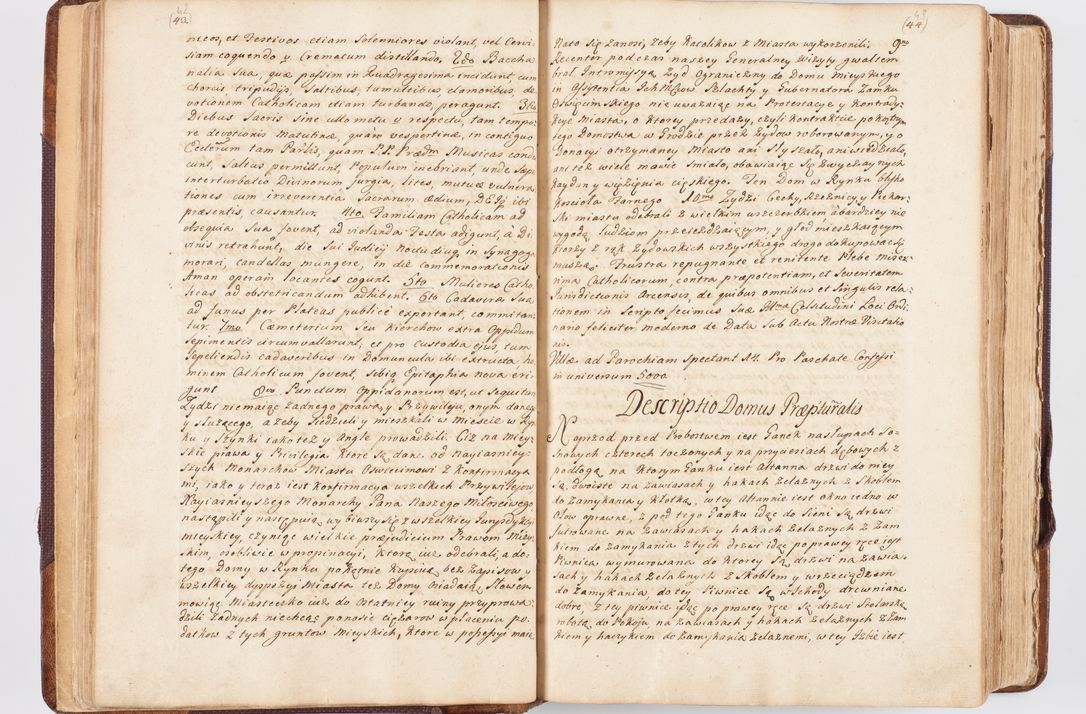 42
(43)
nicos, et Festivos etiam Solenniores violant, vel Cervi-
siam coquendo y Crematum distillando. 2do Baccha
nalia Sua, quæ passim in Quadragesima incidunt, cum
choreis tripudijs, Saltibus, tumultibus, clamoribus, de
votionem Catholicam etiam turbando, peragunt. 3tio
Diebus Sacris sine ullo metu et respectu, tam tempo-
re devotionis matutinæ, quam vespertinæ, in contiguo
tam quam PP. Prædm Musicas condu
cunt, Saltus permittunt, Populum inebriant, unde Sæpe
interturbatio Divinorum jurgia, lites, mutuæ vulnera
tiones cum irreverentia Sacrarum ædium, DEI ibi
præsentis, causantur. 4to Familiam Catholicam ad
obsequia Sua fovent, ad violanda Festa adigunt, à Di
vinis retrahunt, die Sui Judicij noctu diuq, in Synagoga
morari, candellas mungere, in die commemorationis
Aman operam locantes cogunt. 5to Mulieres Catho-
licas ad obstetricandum adhibent. 6to Cadavera Sua
ad funus per Plateas publicè exportant, commitan-
tur. 7mo Cæmeterium Seu Kierchow extra Oppidum
Sepimentis circumvallarunt, et pro custodia ejus, tum
Sepeliendis cadaveribus in Domuncula ibi extructa ho
minem Catholicum fovent, sibiq Epitaphia nova eri-
gunt 8vo Punctum Oppidanorum est, ut Sequitur
Zydzi niemaiąc żadnego prawa, y Przywileju, onym danego
y służącego, ażeby Siedzieli y mieszkali w mieście w Ryn
ku y Szynki iako też y Angle prowadzili. Ciż na Miey-
skie prawa y Privilegia ktore Są dane od Nayiasniey-
szych Monarchow Miastu Oswiecimowi z konfirmacya
mi, iako y teraz iest konfirmacya wszelkich Przywilejow
Nayiasnieyszego Monarchy Pana Naszego Miłosciwego
nastąpili y następuią, wybiwszy się z wszelkiey Jurysdykcyi
mieyskiey, czyniąc wielkie præjudicium Prawom Miey-
skim, osobliwie w propinacyi, ktorą iuż odebrali, a do
tego domy w Rynku pokątnie kupuią, bez zapisow y
wszelkiey dyspozycyi Miasta też Domy Osiadaią, Słowem
mowiąc Miasteczko iuż do Ostatniey ruiny przyprowa-
dzili żadnych niechcąc ponosić ciężarow w płaceniu po
datkow z tych gruntow Mieyskich, ktore w possessyi maią
43
(44)
Nato Się zanosi, żeby Katolikow z Miasta wykorzenili. 9no
Recenter podczas naszey Generalney Wizyty gwałtem
brał Intromissyą Zyd Ograniczny do Domu Mieyskiego
in Assistentia Szlachty y Gubernatora Zamku
Oswięcimskiego nie uważaiąc na Protestacye y Kontrady-
kcye Miasta, o ktorey przedaży, czyli kontrakcie pokątny
tego Domostwa w Grodzie przez Zydow roborowanym, y o
Donacyi otrzymaney Miasto ani Słyszało, ani wiedziało,
ani też wiele mowić smiało, obawiaiąc Się zwyczaynych
kaydan y więzienia cięskiego. Ten Dom w Rynku blisko
Koscioła Farnego 10mo Zydzi Cechy, Rzeźniczy, y Piekar-
ski miastu odebrali z wielkim uszczerbkiem à bardziey nie
wygodą ludziom przejeżdżaiącym, y głod mieszkaiącym
ktorzy z rąk Zydowskich wszystkiego drogo dokupować się
muszą. Frustra repugnante et renitente Plebe miser-
rima Catholicorum, contra præpotentiam, et Severitatem
Jurisdictionis Arcensis, de quibus omnibus et Singulis rela-
tionem in Scripto fecimus Suæ Illma Celsitudini Loci Ordi-
nario feliciter moderno de Data Sub Actu Nostræ Visitatio
nis.
Villæ ad Parochiam Spectant 14. Pro Paschate Confessi
in universum 5000.
Descriptio Domus Præpturalis
Naprzod przed Probostwem iest Ganek na słupach So-
snowych czterech toczonych y na przyciesiach dębowych z
podłogą, na ktorym Ganku iest Altanna drzwi do niey
Są dwoiste na zawiasach y hakach żelaznych z Skoblem
do zamykania y kłotką, w tey Altannie iest okno iedno w
Ołow oprawne, z pod tego Ganku idąc do Sieni Są drzwi
futrowane na zawiasach y hakach żelaznych z zam
kiem do zamykania z tych drzwi idąc po prawey ręce iest
Piwnica wymurowana do ktorey Są drzwi na zawia-
sach y hakach żelaznych z Skoblem y wrzeciądzem
do zamykania, do tey Piwnice Są wschody drewniane
dobre, z tey piwnice idąc po prawey ręce Są drzwi Stolarską
robotą do Pokoju, na zawiasach y hakach żelaznych z zam
kiem y haczykiem do zamykania żelaznemi, w tey Izbie iest